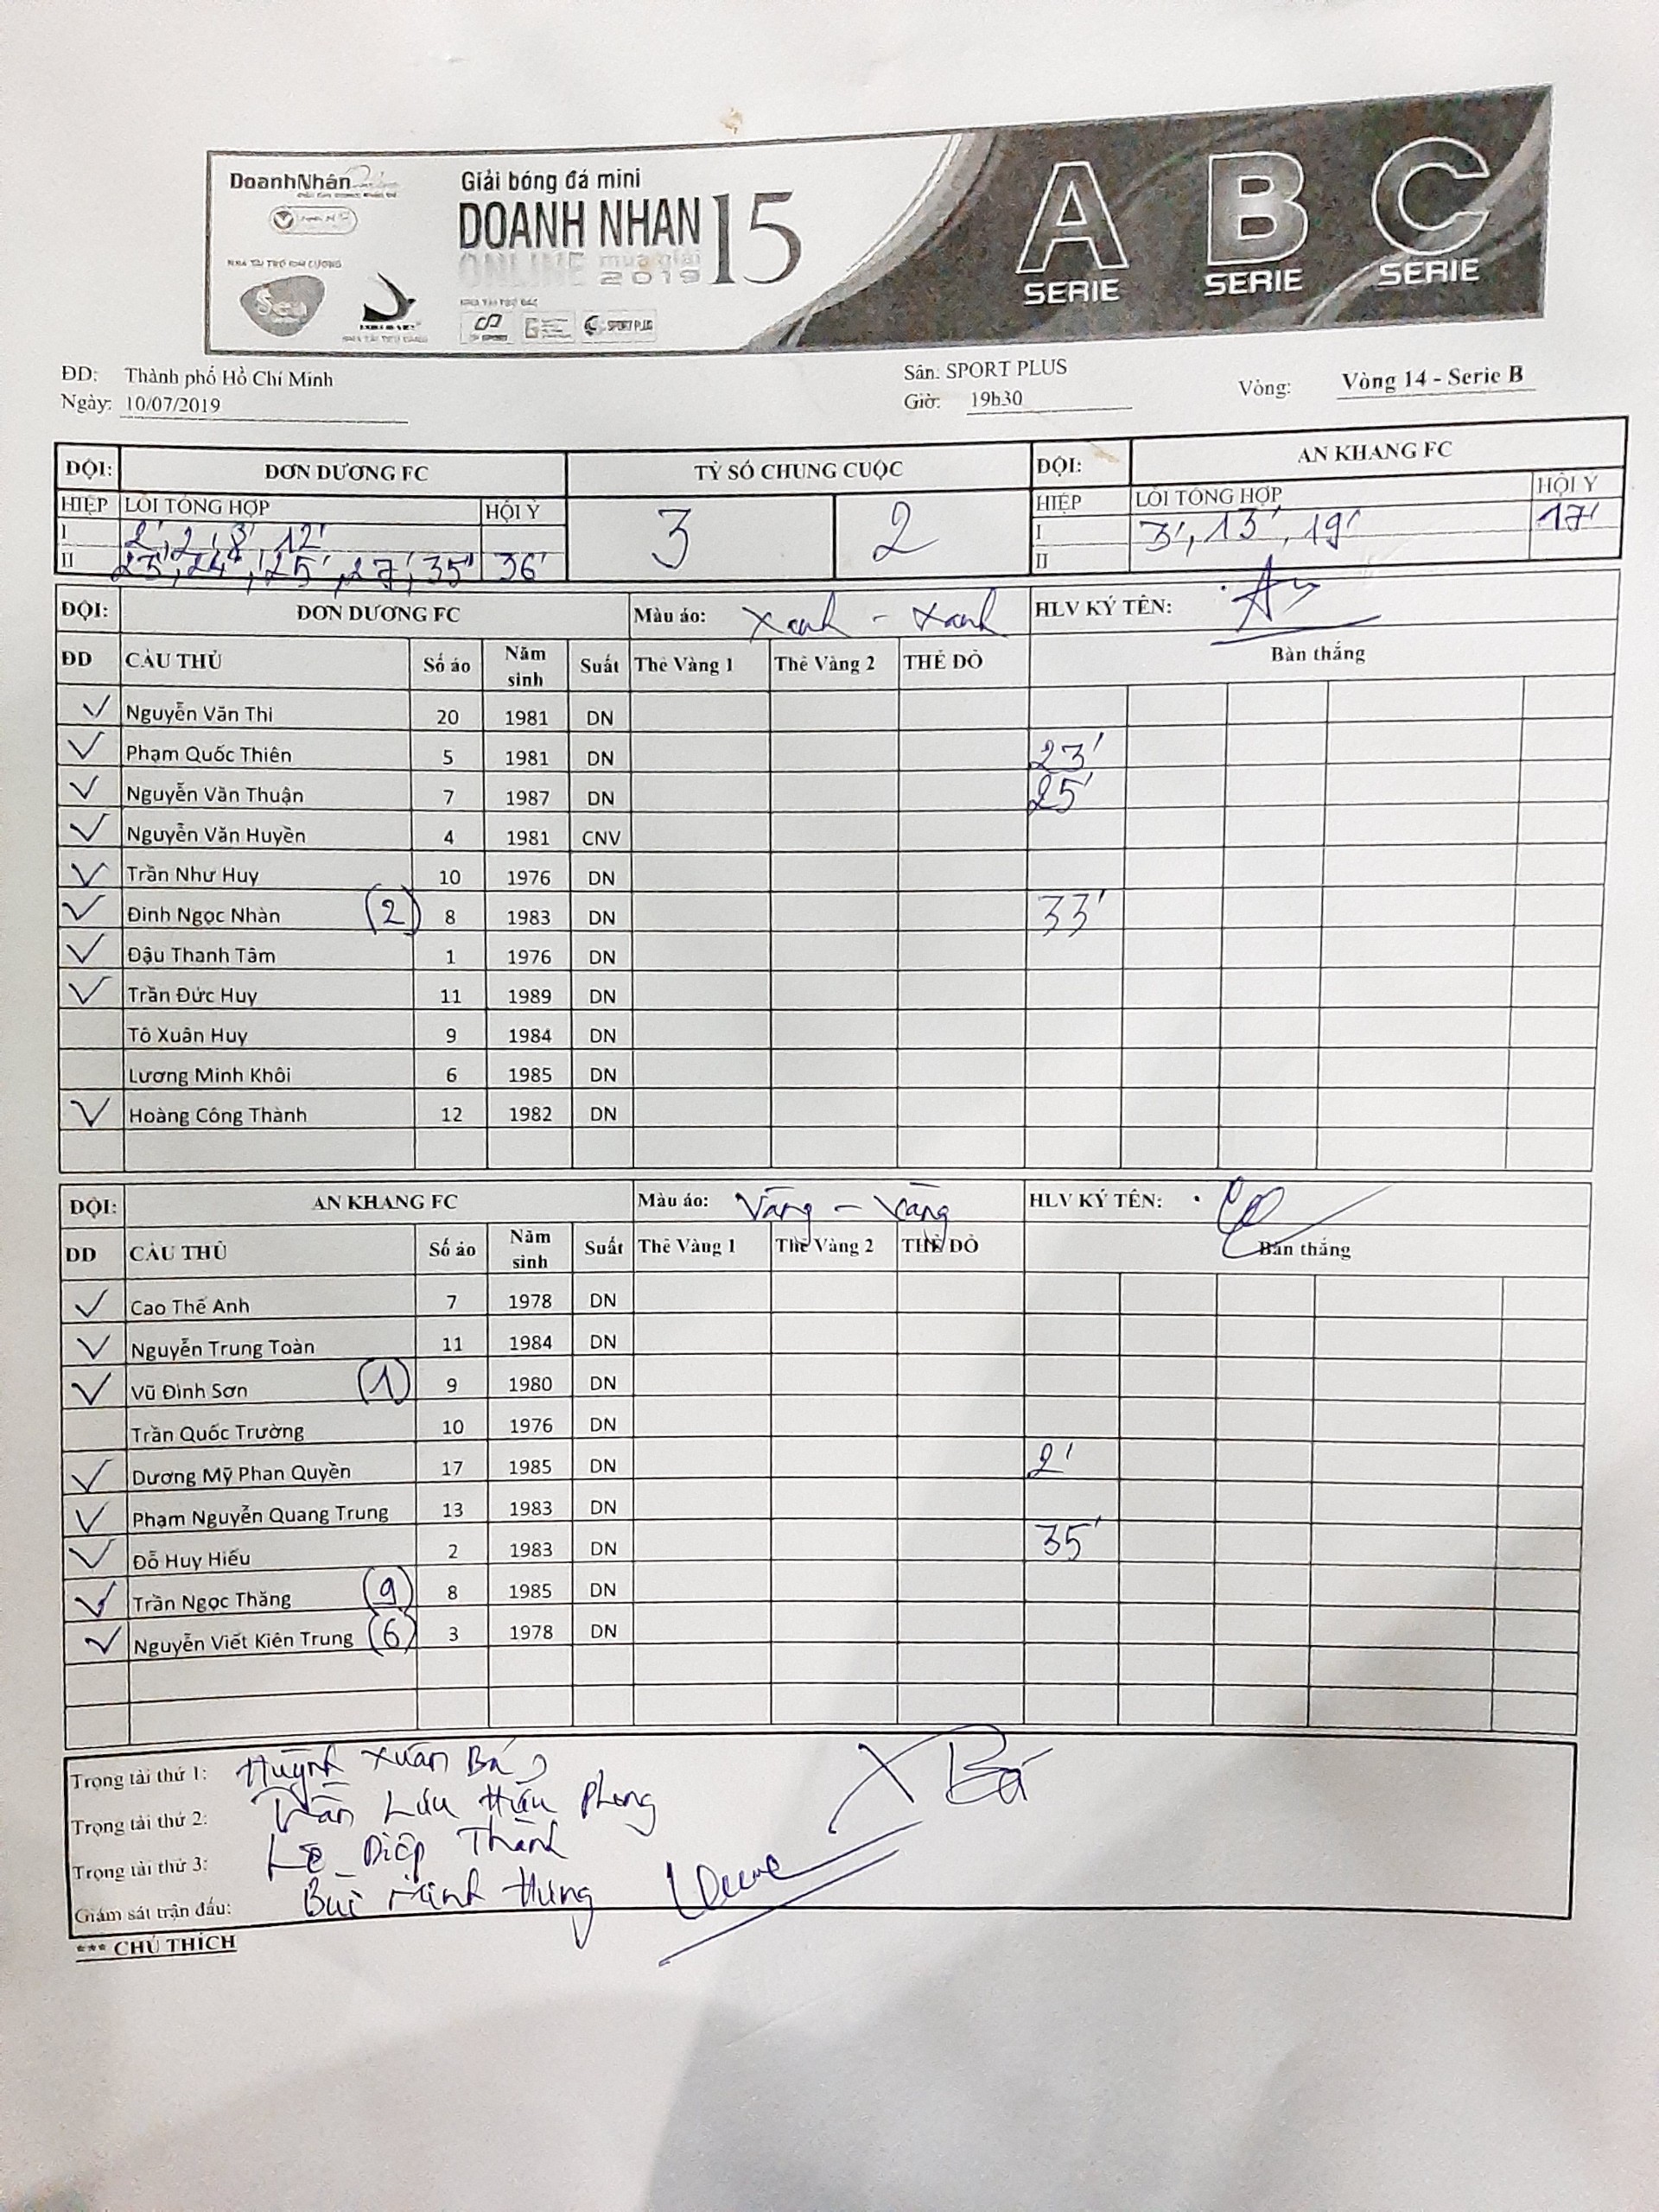 DoanhNhân
Giải bóng đá mini
DOANH NHAN 15
ONLINE mùa giải
2019
NHÀ TÀI TRỢ KIM CƯƠNG
SPORT PLUS
A SERIE
B SERIE
C SERIE
ĐD: Thành phố Hồ Chí Minh Sân: SPORT PLUS Vòng: Vòng 14 - Serie B
Ngày: 10/07/2019 Giờ: 19h30
ĐỘI: ĐƠN DƯƠNG FC TỶ SỐ CHUNG CUỘC ĐỘI: AN KHANG FC
HIỆP LỖI TỔNG HỢP HỘI Ý 3 2 HIỆP LỖI TỔNG HỢP HỘI Ý
I 2', 2', 8', 12' I 3', 13', 19' 17'
II 23', 24', 25', 27', 35' 36' II
ĐỘI: ĐƠN DƯƠNG FC Màu áo: Xanh - Xanh HLV KÝ TÊN:
ĐD CẦU THỦ Số áo Năm sinh Suất Thẻ Vàng 1 Thẻ Vàng 2 THẺ ĐỎ Bàn thắng
Nguyễn Văn Thi 20 1981 DN
Phạm Quốc Thiên 5 1981 DN 23'
Nguyễn Văn Thuận 7 1987 DN 25'
Nguyễn Văn Huyền 4 1981 CNV
Trần Như Huy 10 1976 DN
Đinh Ngọc Nhàn (2) 8 1983 DN 33'
Đậu Thanh Tâm 1 1976 DN
Trần Đức Huy 11 1989 DN
Tô Xuân Huy 9 1984 DN
Lương Minh Khôi 6 1985 DN
Hoàng Công Thành 12 1982 DN
ĐỘI: AN KHANG FC Màu áo: Vàng - Vàng HLV KÝ TÊN:
DD CẦU THỦ Số áo Năm sinh Suất Thẻ Vàng 1 Thẻ Vàng 2 THẺ ĐỎ Bàn thắng
Cao Thế Anh 7 1978 DN
Nguyễn Trung Toàn 11 1984 DN
Vũ Đình Sơn (1) 9 1980 DN
Trần Quốc Trường 10 1976 DN
Dương Mỹ Phan Quyền 17 1985 DN 2'
Phạm Nguyễn Quang Trung 13 1983 DN
Đỗ Huy Hiếu 2 1983 DN 35'
Trần Ngọc Thăng (9) 8 1985 DN
Nguyễn Viết Kiên Trung (6) 3 1978 DN
Trọng tài thứ 1: Huỳnh Xuân Bá X Bá
Trọng tài thứ 2: Trần Lưu Hữu Phong
Trọng tài thứ 3: Lê Diệp Thành
Giám sát trận đấu: Bùi Minh Hưng
*** CHÚ THÍCH